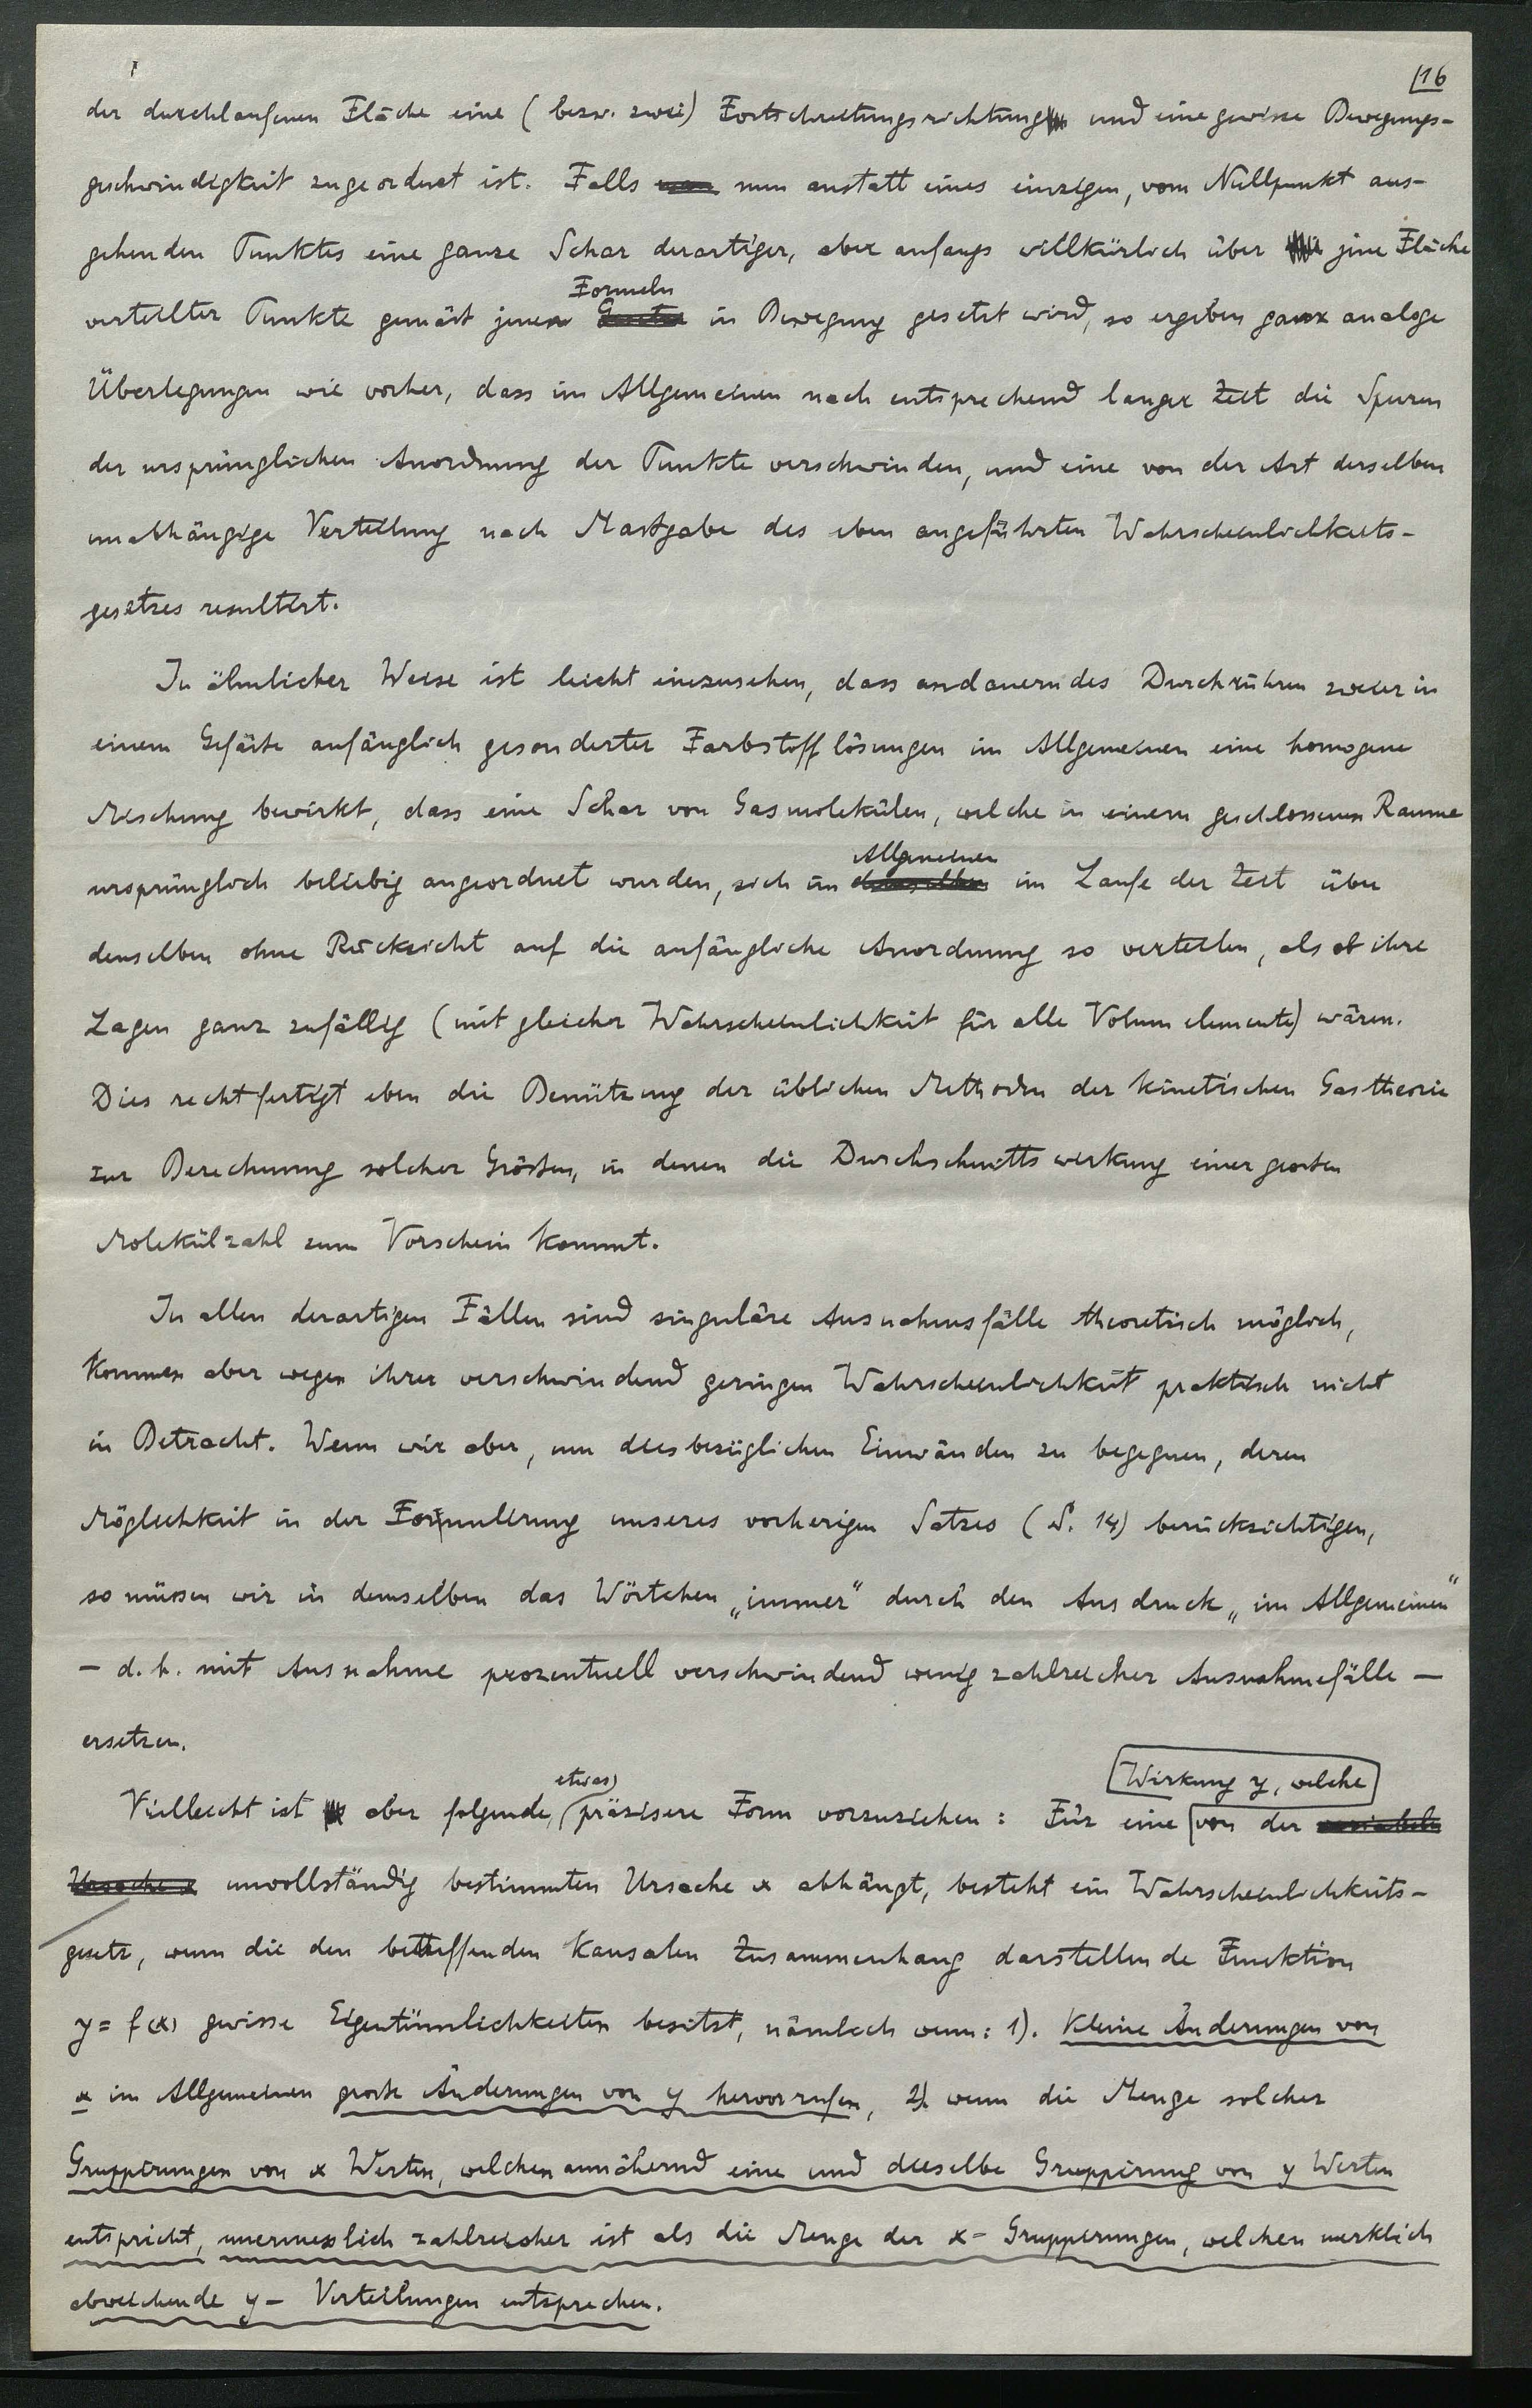 16
der durchlaufenen Fläche eine (bezw. zwei) Fortschreitungsrichtung und eine gewisse Bewegungs-
geschwindigkeit zugeordnet ist. Falls nun anstatt eines einzigen, vom Nullpunkt aus-
gehenden Punktes eine ganze Schar derartiger, aber anfangs willkürlich über jene Fläche
Formeln
verteilter Punkte gemäß jenen in Bewegung gesetzt wird, so ergeben ganz analoge
Überlegungen wie vorher, dass im Allgemeinen nach entsprechend langer Zeit die Spuren
der ursprünglichen Anordnung der Punkte verschwinden, und eine von der Art derselben
unabhängige Verteilung nach Maßgabe des eben angeführten Wahrscheinlichkeits-
gesetzes resultirt.
In ähnlicher Weise ist leicht einzusehen, dass andauerndes Durchrühren zweier in
einem Gefäße anfänglich gesonderter Farbstofflösungen im Allgemeinen eine homogene
Mischung bewirkt, dass eine Schar von Gasmolekülen, welche in einem geschlossenen Raume
Allgemeinen
ursprünglich beliebig angeordnet wurden, sich im demselben im Laufe der Zeit über
denselben ohne Rücksicht auf die anfängliche Anordnung so verteilen, als ob ihre
Lagen ganz zufällig (mit gleicher Wahrscheinlichkeit für alle Volumelemente) wären.
Dies rechtfertigt eben die Benützung der üblichen Methoden der kinetischen Gastheorie
zur Berechnung solcher Größen, in denen die Durchschnittswirkung einer großen
Molekülzahl zum Vorschein kommt.
In allen derartigen Fällen sind singuläre Ausnahmsfälle theoretisch möglich,
kommen aber wegen ihrer verschwindend geringen Wahrscheinlichkeit praktisch nicht
in Betracht. Wenn wir aber, um diesbezüglichen Einwänden zu begegnen, deren
Möglichkeit in der Formulirung unseres vorherigen Satzes (S. 14) berücksichtigen,
so müssen wir in demselben das Wörtchen „immer“ durch den Ausdruck „im Allgemeinen“
— d. h. mit Ausnahme prozentuell verschwindend wenig zahlreicher Ausnahmefälle —
ersetzen.
etwas Wirkung y, welche
Vielleicht ist aber folgende, präzisere Form vorzuziehen: Für eine von der variabeln
Ursache x unvollständig bestimmten Ursache x abhängt, besteht ein Wahrscheinlichkeits-
gesetz, wenn die den betreffenden kausalen Zusammenhang darstellende Funktion
y = f(x) gewisse Eigentümlichkeiten besitzt, nämlich wenn: 1). Kleine Änderungen von
x im Allgemeinen große Änderungen von y hervorrufen, 2) wenn die Menge solcher
Gruppirungen von x Werten, welchen annähernd eine und dieselbe Gruppirung von y Werten
entspricht, unermesslich zahlreicher ist als die Menge der x- Gruppirungen, welchen merklich
abweichende y- Verteilungen entsprechen.